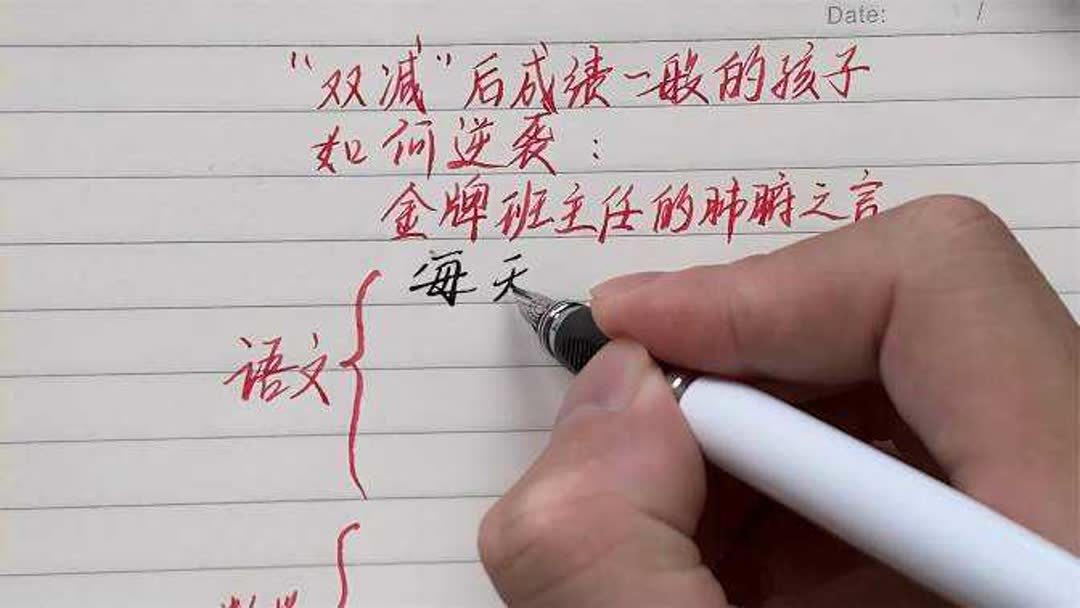 Date: /
“双减”后成绩一般的孩子
如何逆袭：
金牌班主任的肺腑之言
每天
语文